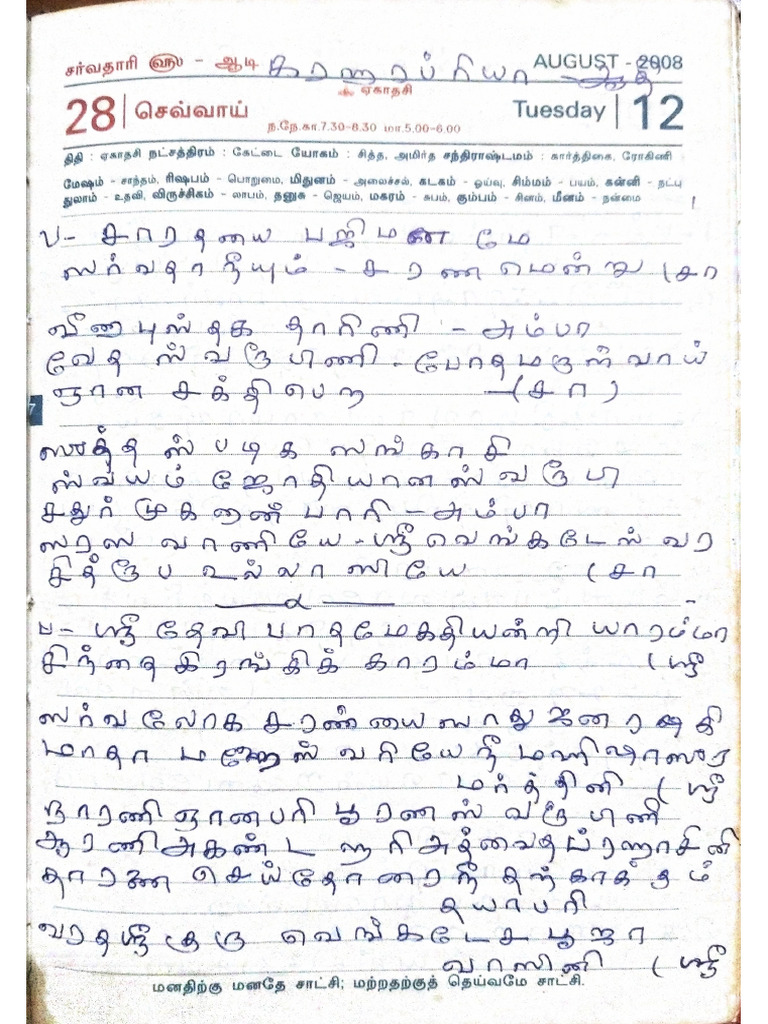 சர்வதாரி ௵ - ஆடி கரஹரப்ரியா AUGUST - 2008 ஆதி
ஏகாதசி
28 செவ்வாய் Tuesday 12
ந.நே.கா.7.30-8.30 மா.5.00-6.00
திதி : ஏகாதசி நட்சத்திரம் : கேட்டை யோகம் : சித்த, அமிர்த சந்திராஷ்டமம் : கார்த்திகை, ரோகிணி
மேஷம் - சாந்தம், ரிஷபம் - பொறுமை, மிதுனம் - அலைச்சல், கடகம் - ஓய்வு, சிம்மம் - பயம், கன்னி - நட்பு
துலாம் - உதவி, விருச்சிகம் - லாபம், தனுசு - ஜெயம், மகரம் - சுபம், கும்பம் - சினம், மீனம் - நன்மை
ப - சாரதயை பஜிமன மே
ஸர்வதா நீயும் - சரணமென்று (சா
வீணபுஸ்தக தாரிணி - அம்பா
வேத ஸ்வரூபிணி - போதமருள்வாய்
ஞான சக்திபெற - (சார)
ஸுத்த ஸ்படிக ஸங்காசி
ஸ்வயம் ஜோதியானஸ்வரூபி
சதுர்முகனின் பாரி - அம்பா
ஸரஸ வாணியே - ஸ்ரீ வெங்கடேஸ்வர
சித்ரூப உல்லாஸியே (சா
ப - ஸ்ரீ தேவி பாதமேகதியன்றி யாரம்மா
சிந்தை கிரங்கிக் காரம்மா (ஸ்ரீ
ஸர்வ லோக சரண்யை ஸாது ஜனரக்ஷகி
மாதா மஹேஸ்வரியே நீ மஹிஷாஸுர
மர்த்தினி (ஸ்ரீ
நாரணி ஞானபரி பூரணஸ்வரூபிணி
ஆரணி அகண்ட ஹரி அத்வைதப்ரஹாசினி
தாரண செய்தோரை நீ தற்காக்கும்
தயாபரி
வரதஸ்ரீ குரு வெங்கடேச பூஜா
வாஸினி (ஸ்ரீ
மனதிற்கு மனதே சாட்சி; மற்றதற்குத் தெய்வமே சாட்சி.